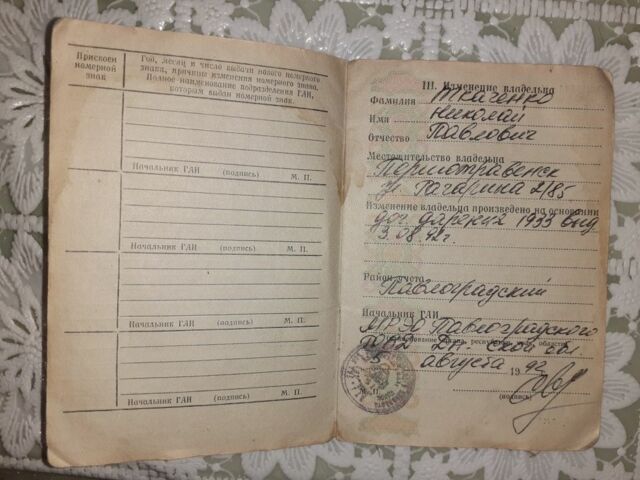 Присвоен номерной знак
Год, месяц и число выдачи нового номерного знака, причины изменения номерного знака. Полное наименование подразделения ГАИ, которым выдан номерной знак.
Начальник ГАИ (подпись) М. П.
Начальник ГАИ (подпись) М. П.
Начальник ГАИ (подпись) М. П.
Начальник ГАИ (подпись) М. П.
III. Изменение владельца
Фамилия Ткаченко
Имя Николай
Отчество Павлович
Местожительство владельца
Першотравенск
ул. Гагарина 2/85
Изменение владельца произведено на основании
дог. дарения 1933 выд
3.08.92г.
Район учета
Павлоградский
Начальник ГАИ
МРЭО Павлоградского
области
5 августа 1992
М. П.
(подпись)